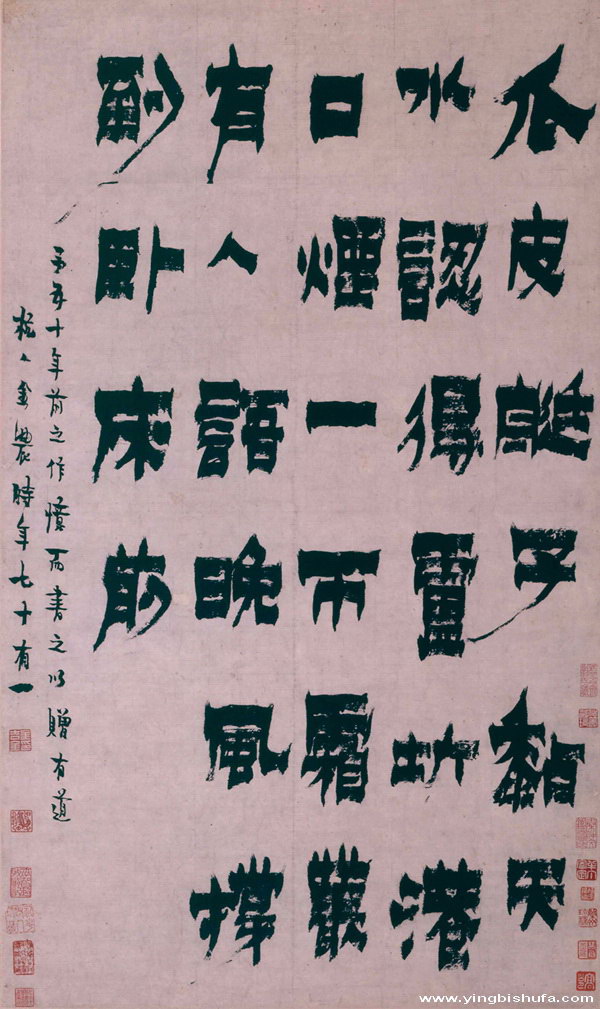 瓜皮艇子黏天
水認得圻港
口煙一帀霜叢
有人語晚風撐
到卧床前
予五十年前之作憶而書之以贈有道
杭人金農時年七十有一
www.yingbishufa.com